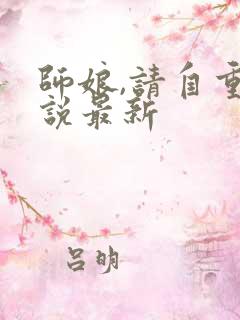 師娘,請自重
說最新
呂明